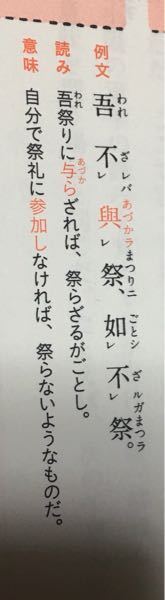 例文 吾われ不ざレバレ與あづかラレ祭まつりニ、如ごとシレ不ざルガレ祭まつラ。
読み 吾われ祭りに与あづからざれば、祭らざるがごとし。
意味 自分で祭礼に参加しなければ、祭らないようなものだ。